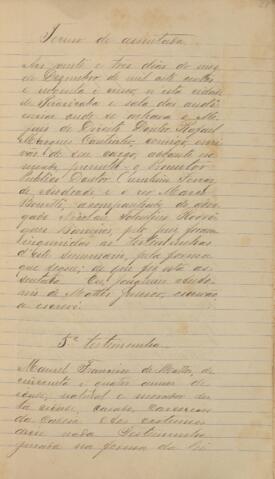 Termo de assentada
Aos vinte e tres dias do mez
de Dezembro de mil oito centos
e noventa e cinco, n'esta cidade
de Piracicaba e sala das audi-
encias onde se achava o M.
Juiz de Direito Doutor Rafael
Marques Cantinho, comigo escri-
vão de seu cargo, ahi
presente o Promotor
Publico Doutor
e o reo
Bonetti, acompanhado de advo-
gado Nicolau Tolentino Rodri-
gues Barreiros, pelo juiz foram
inqueridas as testemunhas
d'este summario, pela forma
que segue; do que fiz esta as-
sentada. Eu,
de Mattos Junior, escrivão
o escrevi.
5ª testemunha
Manoel Francisco de Mattos, de
cincoenta e quatro annos de
idade, natural e morador des-
ta cidade, casado,
da Costa e aos costumes
disse nada. Testemunha
jurada na forma da lei